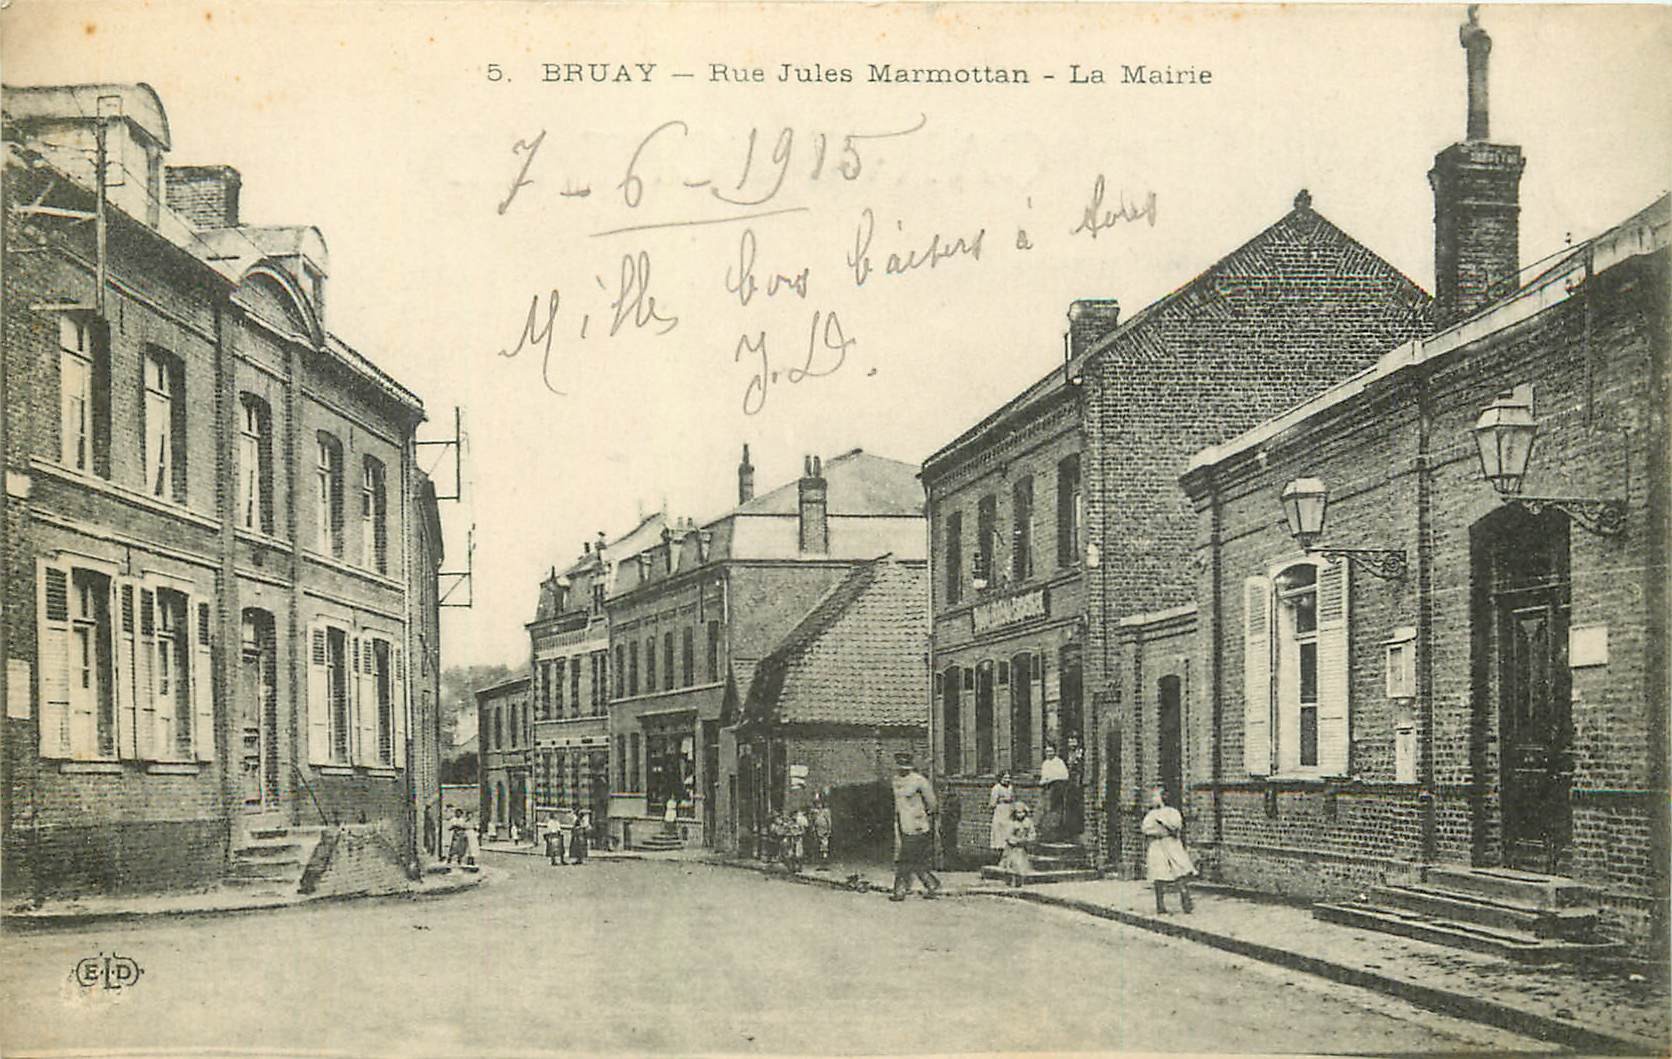 5. BRUAY — Rue Jules Marmottan - La Mairie
7-6-1915
Mille bons baisers à tous
J.D.
E.L.D